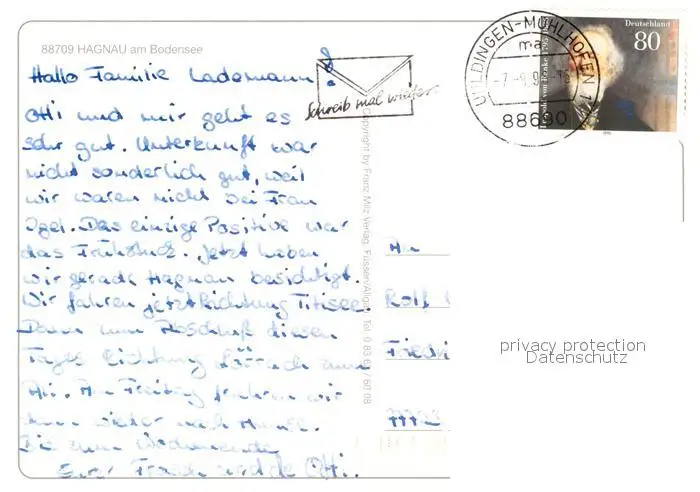 88709 HAGNAU am Bodensee
Hallo Familie Lademann!
Otti und mir geht es
sehr gut. Unterkunft war
nicht sonderlich gut, weil
wir waren nicht bei Frau
Igel. Das einzige Positive war
das Frühstück. Jetzt haben
wir gerade Hagnau besichtigt.
Wir fahren jetzt Richtung Titisee
Dann zum Abschluß diesen
Tages Richtung Lörrach zum
Am Freitag fahren wir
dann wieder nach Hause.
Bis zum Wochenende
Eure und Otti.
Schreib mal wieder.
Copyright by Franz Milz Verlag, Füssen/Allgäu Tel. 0 83 62 / 60 08
UHLDINGEN-MÜHLHOFEN 1
ma
88690
Deutschland
80
An
Rolf
Friedri
privacy protection
Datenschutz